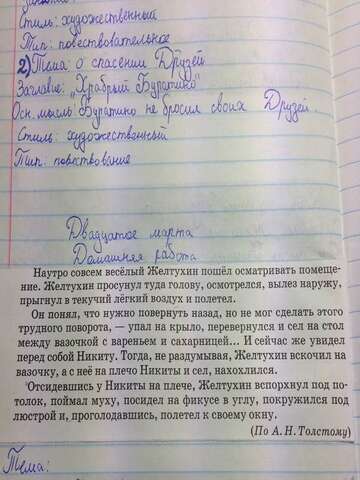 Стиль: художественный
Тип: повествовательное
2) Тема о спасении Друзей
Заглавие: "Храбрый Буратино"
Осн. мысль Буратино не бросил своих Друзей.
Стиль: художественный
Тип: повествование
Двадцатое марта
Домашняя работа
Наутро совсем весёлый Желтухин пошёл осматривать помеще-
ние. Желтухин просунул туда голову, осмотрелся, вылез наружу,
прыгнул в текучий лёгкий воздух и полетел.
Он понял, что нужно повернуть назад, но не мог сделать этого
трудного поворота, — упал на крыло, перевернулся и сел на стол
между вазочкой с вареньем и сахарницей... И сейчас же увидел
перед собой Никиту. Тогда, не раздумывая, Желтухин вскочил на
вазочку, а с неё на плечо Никиты и сел, нахохлился.
Отсидевшись у Никиты на плече, Желтухин вспорхнул под по-
толок, поймал муху, посидел на фикусе в углу, покружился под
люстрой и, проголодавшись, полетел к своему окну.
(По А. Н. Толстому)
Тема: